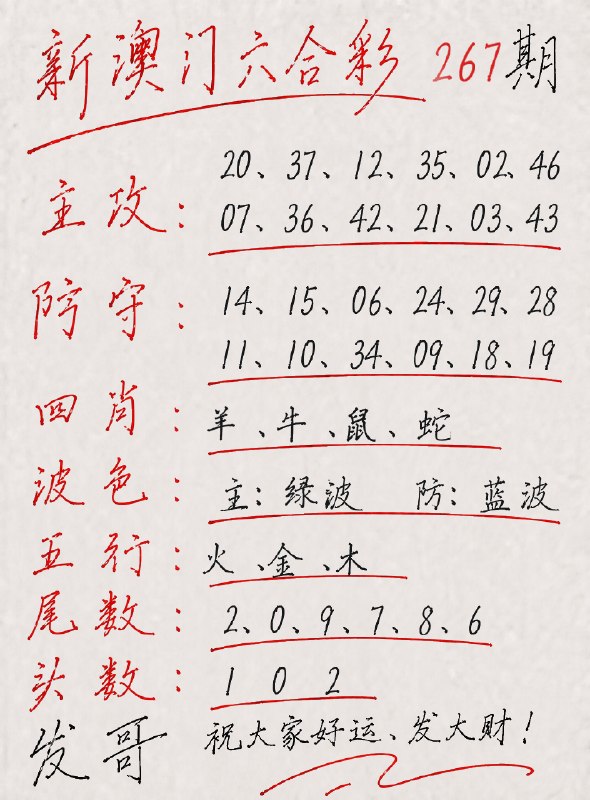 新澳门六合彩 267期
主攻：20、37、12、35、02、46
07、36、42、21、03、43
防守：14、15、06、24、29、28
11、10、34、09、18、19
四肖：羊、牛、鼠、蛇
波色：主：绿波 防：蓝波
五行：火、金、木
尾数：2、0、9、7、8、6
头数：1 0 2
发哥 祝大家好运、发大财！